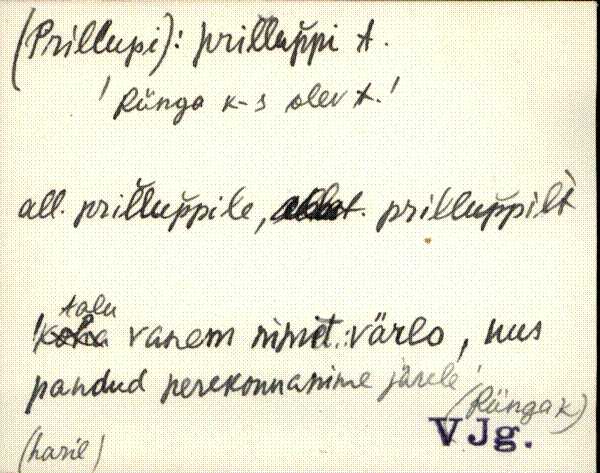 (Prillupi): prilluppi t.
'Rünga k-s olev t.'
all. prilluppile, ablat. prilluppilt
talu
'koha vanem nimit.: värlo, uus
pandud perekonnanime järele'
(Rünga k)
VJg.
(haril)